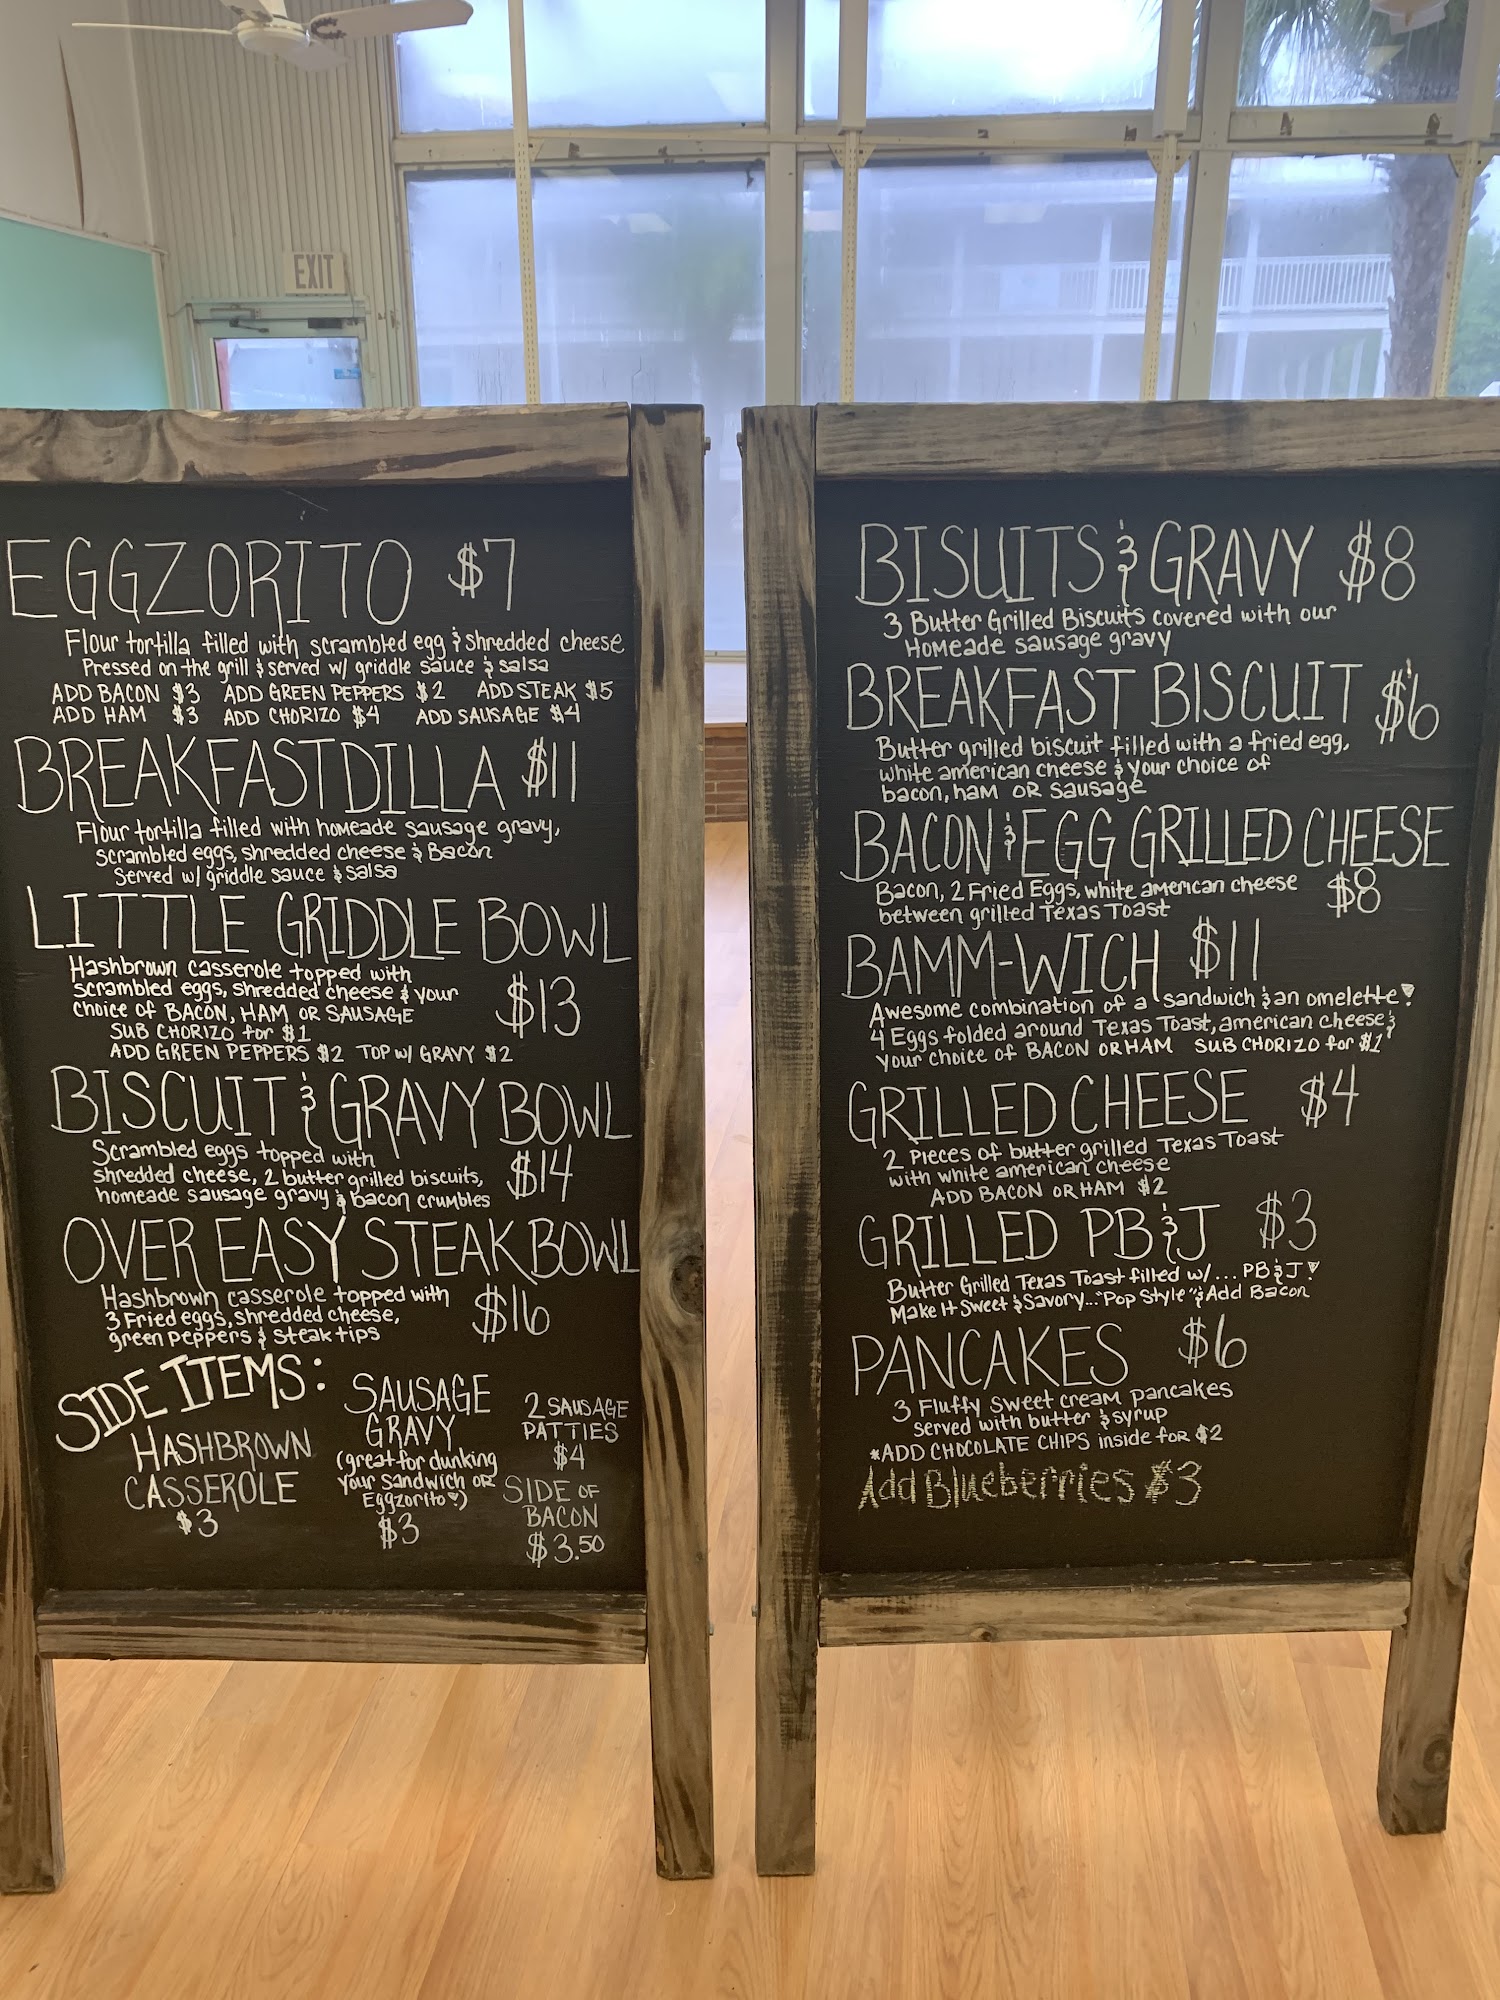 EXIT
EGGZORITO $7
Flour tortilla filled with scrambled egg & shredded cheese
Pressed on the grill & served w/ griddle sauce & salsa
ADD BACON $3 ADD GREEN PEPPERS $2 ADD STEAK $5
ADD HAM $3 ADD CHORIZO $4 ADD SAUSAGE $4
BREAKFASTDILLA $11
Flour tortilla filled with homeade sausage gravy,
scrambled eggs, shredded cheese & Bacon
Served w/ griddle sauce & salsa
LITTLE GRIDDLE BOWL
Hashbrown casserole topped with
scrambled eggs, shredded cheese & your
choice of BACON, HAM OR SAUSAGE
$13
SUB CHORIZO for $1
ADD GREEN PEPPERS $2 TOP w/ GRAVY $2
BISCUIT & GRAVY BOWL
Scrambled eggs topped with
shredded cheese, 2 butter grilled biscuits,
homeade sausage gravy & bacon crumbles
$14
OVER EASY STEAK BOWL
Hashbrown casserole topped with
3 Fried eggs, shredded cheese,
green peppers & steak tips
$16
SIDE ITEMS:
HASHBROWN
CASSEROLE
$3
SAUSAGE
GRAVY
(great for dunking
your sandwich OR
Eggzorito)
$3
2 SAUSAGE
PATTIES
$4
SIDE OF
BACON
$3.50
BISUITS & GRAVY $8
3 Butter Grilled Biscuits covered with our
Homeade sausage gravy
BREAKFAST BISCUIT $6
Butter grilled biscuit filled with a fried egg,
white american cheese & your choice of
bacon, ham OR sausage
BACON & EGG GRILLED CHEESE
Bacon, 2 Fried Eggs, white american cheese
between grilled Texas Toast
$8
BAMM-WICH $11
Awesome combination of a sandwich & an omelette!
4 Eggs folded around Texas Toast, american cheese &
your choice of BACON OR HAM SUB CHORIZO for $1
GRILLED CHEESE $4
2 Pieces of butter grilled Texas Toast
with white american cheese
ADD BACON OR HAM $2
GRILLED PB & J $3
Butter Grilled Texas Toast filled w/... PB & J!
Make It Sweet & Savory... "Pop Style" & Add Bacon
PANCAKES $6
3 Fluffy Sweet cream pancakes
served with butter & syrup
*ADD CHOCOLATE CHIPS inside for $2
Add Blueberries $3